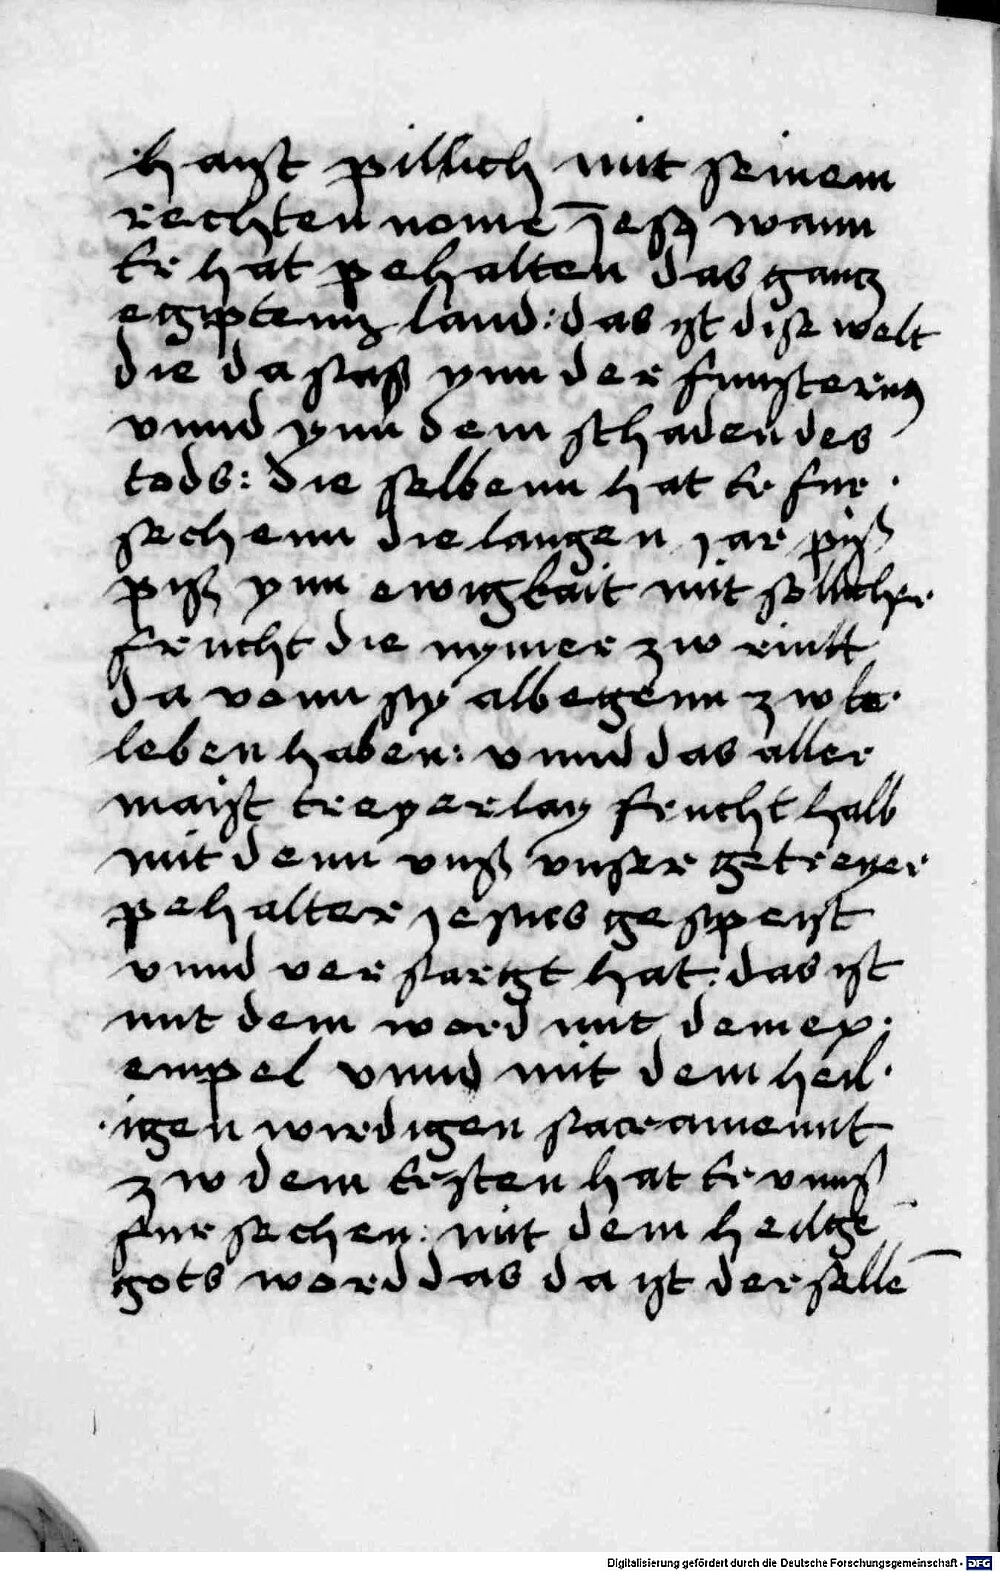 haist pillich mit seinem
rechten nome Jesus wann
Er hat pehalten das gantz
egiptenn land: das ist dise welt
die da sas ynn der finsternus
vnnd ynn dem schaden des
tods: die selbenn hat Er fur
sechenn die langen jar piß
piß ynn ewigkait mit sollicher
frucht die nymer zw rintt
da vonn sy albegenn zw le
leben haben: vnnd das aller
maist treyerlay frucht halb
mit denn vnß vnser getreyer
pehalter jesus gespeist
vnnd verstargt hat: das ist
mit dem word mit dem ex
empel vnnd mit dem heil
igen wirdigen sacramennt
zw dem Ersten hat Er vnnß
fur sechen: mit dem heilgē
gots word das da ist der sellē
Digitalisierung gefördert durch die Deutsche Forschungsgemeinschaft - DFG